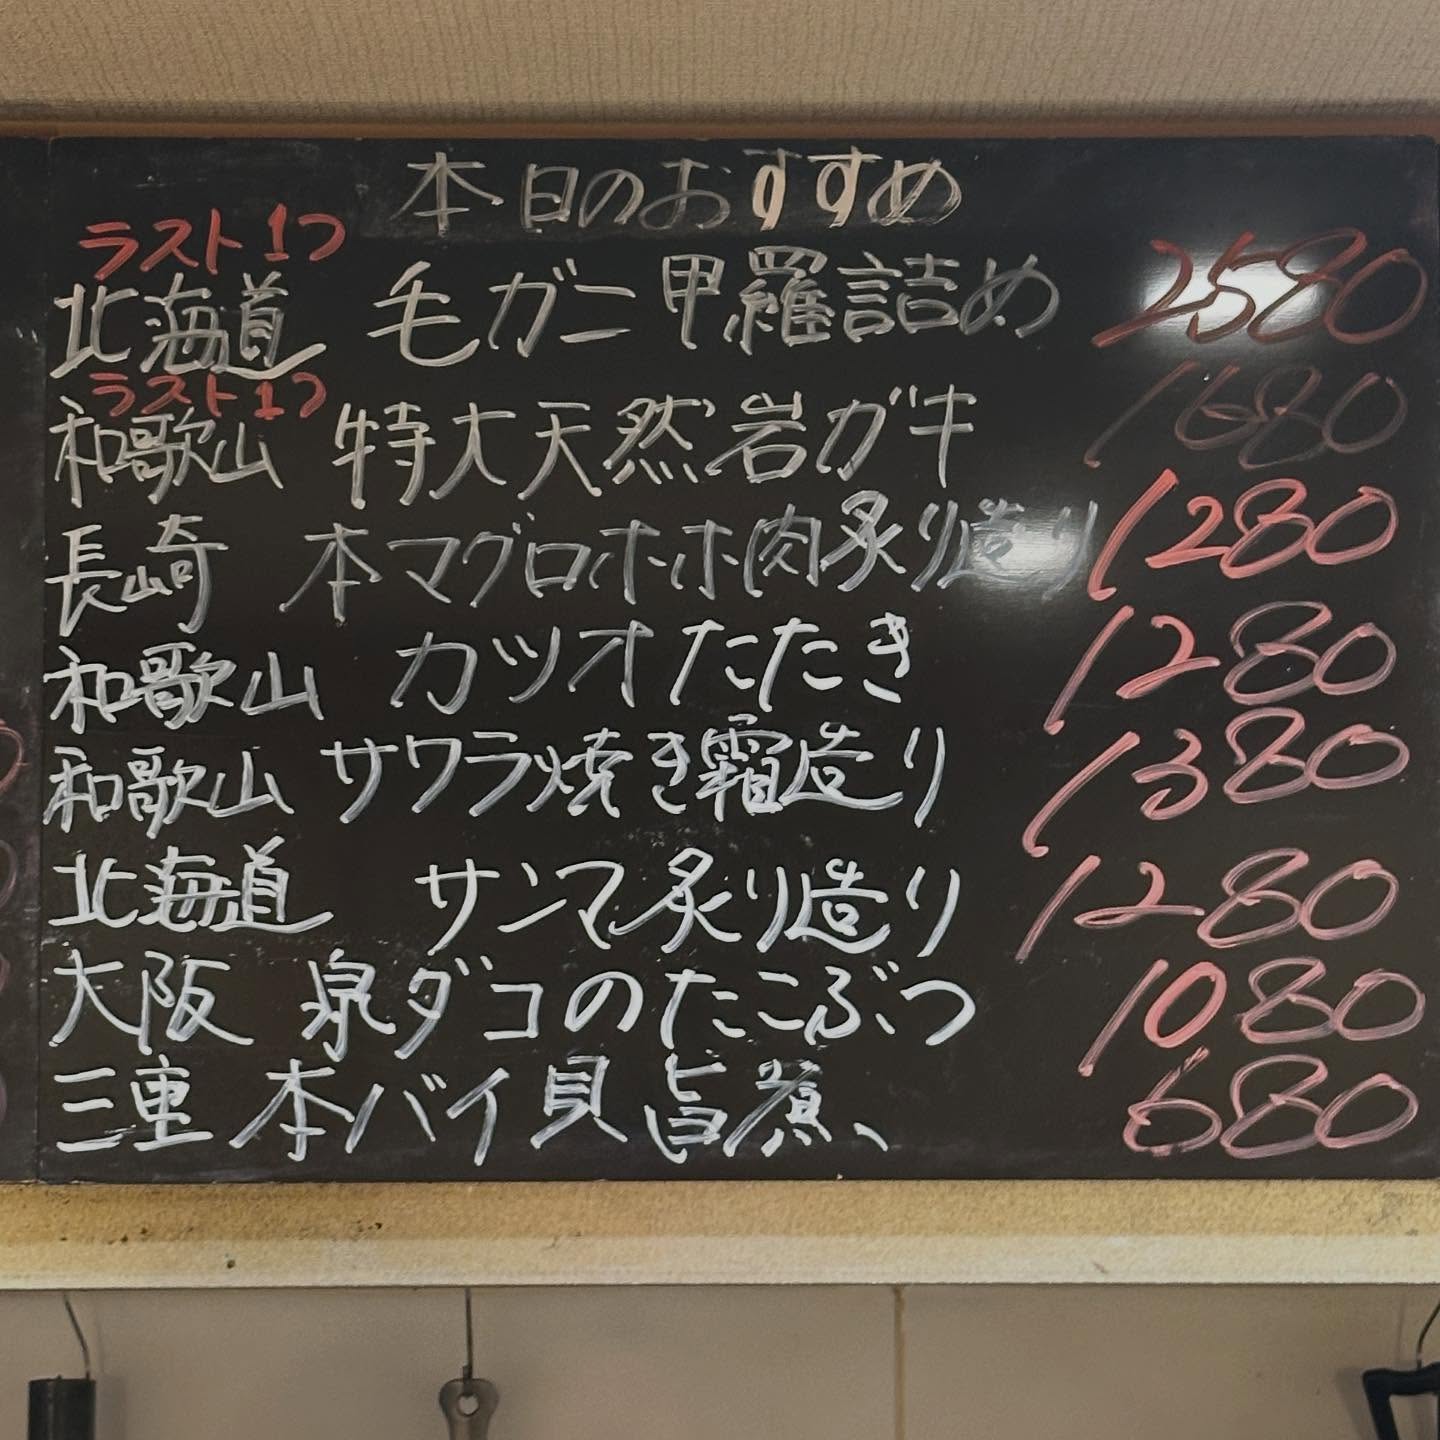 本日のおすすめ
ラスト1つ
北海道 毛ガニ甲羅詰め 2580
ラスト1つ
和歌山 特大天然岩ガキ 1680
長崎 本マグロホホ肉炙り造り 1280
和歌山 カツオたたき 1280
和歌山 サワラ焼き霜造り 1380
北海道 サンマ炙り造り 1280
大阪 泉ダコのたこぶつ 1080
三重 本バイ貝旨煮、 680